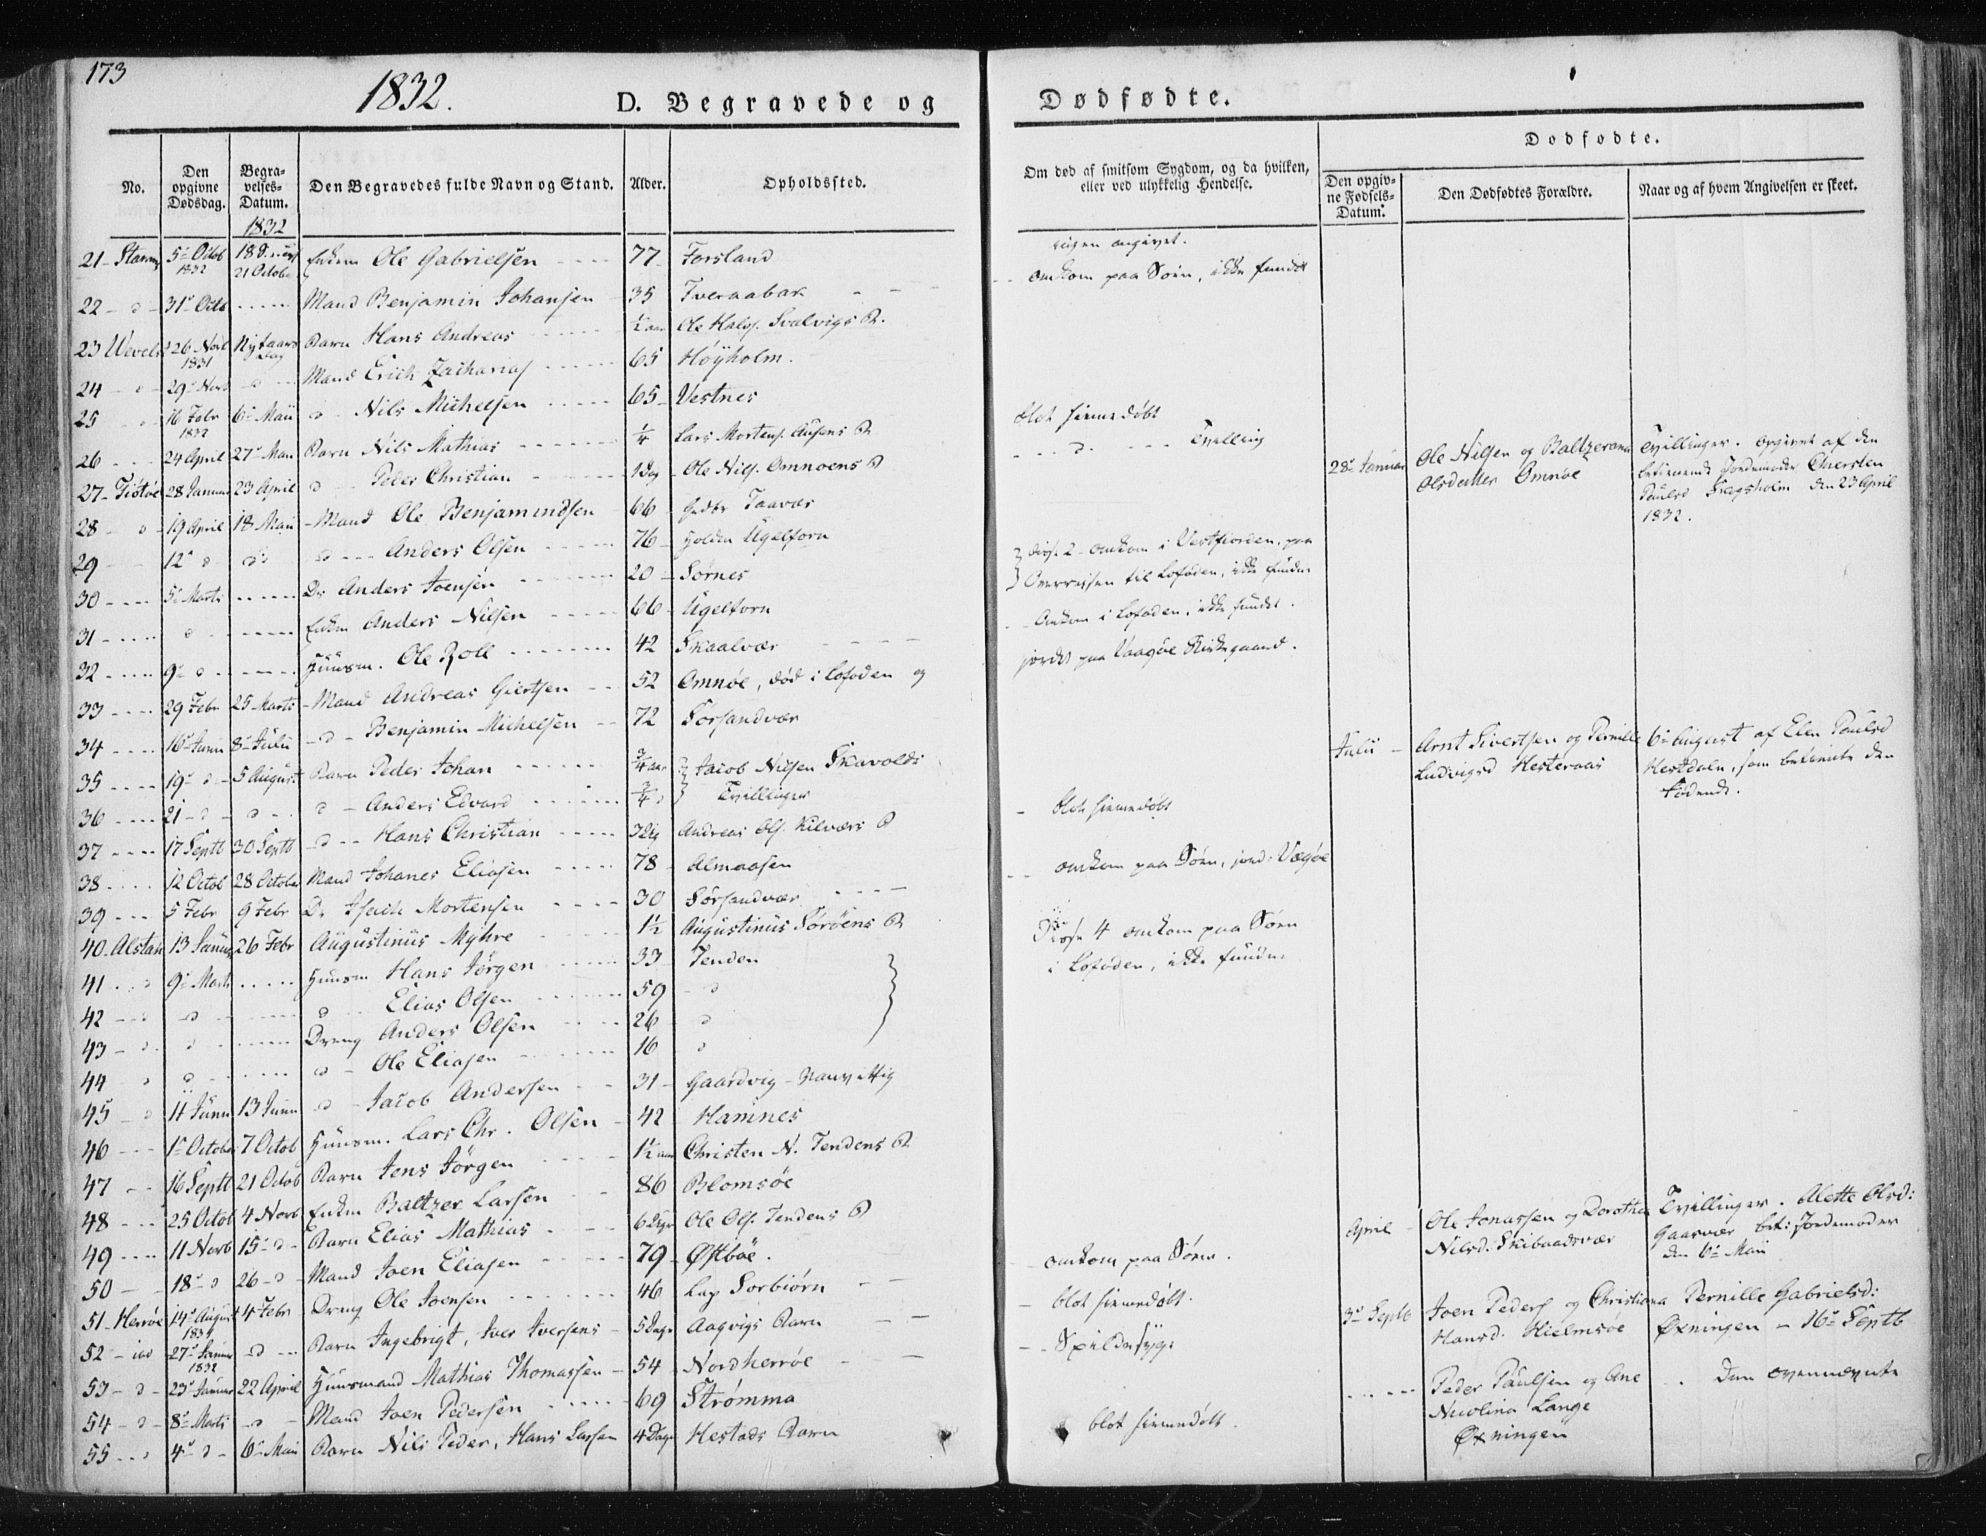 173
1832.
D. Begravede og
Dødfødte.
Dødfødte.
No.
Den opgivne Dødsdag.
Begravelses-Datum.
Den Begravedes fulde Navn og Stand.
Alder.
Opholdssted.
Om død af smitsom Sygdom, og da hvilken, eller ved ulykkelig Hendelse.
Den opgivne Fødsels-Datum.
Den Dødfødtes Forældre.
Naar og af hvem Angivelsen er skeet.
1832
21 5 Octob 1832 21 Octob Ole Gabrielsen 77 Forsland
22 - d - 31 Octb Mand Benjamin Johansen 35 Tveraabak - omkom paa Søen, ikke fundet
23 26 Novb 1831 Nytaars dag Barn Hans Andreas ½ aar Ole Halv. Svalvigs B.
24 - d 29 Novb - d - Mand Erich Zacharias 65 Høyholm.
25 - d 16 Febr 1832 6 Maii d - Nils Michelsen 65 Vestnes
26 24 April 27 Mai Barn Nils Mathias ¼ Lars Mortens. Ausens B blot hiemedøbt
27 Tiøtøe 28 Januar 23 April d Peder Christian 1 Dag Ole Nils. Omnoens B - d - Tvilling
28 - d 19 April 18 Maii Mand Ole Benjaminsen 66 Taavær
29 12 d d Anders Olsen 76 Holden Ugelforn
30 5 Marts D. Anders Joensen 20 Sørnes
31 d Anders Nilsen 66 Ugelforn
disse 2 omkom i Vestfiorden, paa Overreisen til Lofoden, ikke fundne
32 9 d Huusm. Ole Roll 42 Skaalvær - Omkom i Lofoden, ikke fundet.
33 29 Febr 25 Marts Mand Andreas Giertsen 52 Omnøe, død i Lofoden og jordet paa Vaagøe Kirkegaard.
34 16 Junii 8 Julii - d - Benjamin Michelsen 72 Sørsandvær
35 19 d 5 August Barn Peder Johan ¾ aar Jacob Nilsen Skavolds
36 21 - d - d Anders Edvard ¾ d Tvillinger
37 17 Septb 30 Septb - d - Hans Christian 3 Dag Andreas Ols. Kilværs B - blot hiemedøbt
38 12 Octob 28 October Mand Johanes Eliasen 78 Almaasen
39 5 Febr 9 Febr D. Mortensen 30 Sørsandvær - omkom paa Søen, jord: Vægøe
40 Alstah 13 Januar 26 Febr Augustinus Myhre 1½ Augustinus Sørøens B
41 - d 9 Marts Huusm Hans Jørgen 33 Tenden
42 - d d d Elias Olsen 59 - d
43 - d d Dreng Anders Olsen 26 - d
44 d d d - Ole Eliasen 16 d
Disse 4 omkom paa Søen i Lofoden, ikke fundne
45 - d 11 Junii 13 Junii d - Jacob Andersen 31 Gaardvig - Vanvittig
46 1 October 7 Octob Huusm. Lars Chr. Olsen 42 Hamnes
47 16 Septb 21 Octob Barn Jens Jørgen 1½ aar Christen N. Tendens B
48 25 Octob 4 Novb Baltzer Larsen 86 Blomsøe
49 11 Novb 15 - d - Barn Elias Mathias 6 Dage Ole Ols. Tendens B
50 18 d 26 - d - Mand Joen Eliasen 79 Østbøe.
51 Herrøe 14 August 1831 4 Febr Dreng Ole Joensen 46 Lap Sorbiørn - omkom paa Søen.
52 - ibd 27 Januar 1832 - d - Barn Ingebrigt, Iver Iversens 5 Dage Aagvigs Barn - blot hiemedøbt.
53 - d - 23 Januar 22 April Huusmand Mathias Thomassen 54 Nordherrøe - Spedalsksyge
54 - d - 8 Marts - d - Mand Joen Pedersen 69 Strømma
55 4 d 6 Mai Barn Nils Peder, Hans Larsen 4 Dage Hestads Barn blot hiemedøbt.
28 Januar Ole Nilsen og Baltzerana Olsdatter Omnøe Tvillinger. Opgivet af den betienende Jordemoder Chersten Paulsd Skogsholm den 23 April 1832.
Julii - Arnt Sivertsen og Pernille Ludvigsd Hesteraas 6 August af Elen Paulsd Hestdalen, som betiente den Fødende.
April - Ole Jonassen og Dorothea Nilsd. Skibaadsvær Tvillinger. Alette Olsd: Gaasvær bet: Jordemoder den 6 Maii
3 Septb Joen Peders og Christiana Hansd. Hielmsøe Pernille Gabrielsd: Øxningen - 16 Septb
Peder Paulsen og Ane Nicolina Lange Øxningen Den ovennævnte